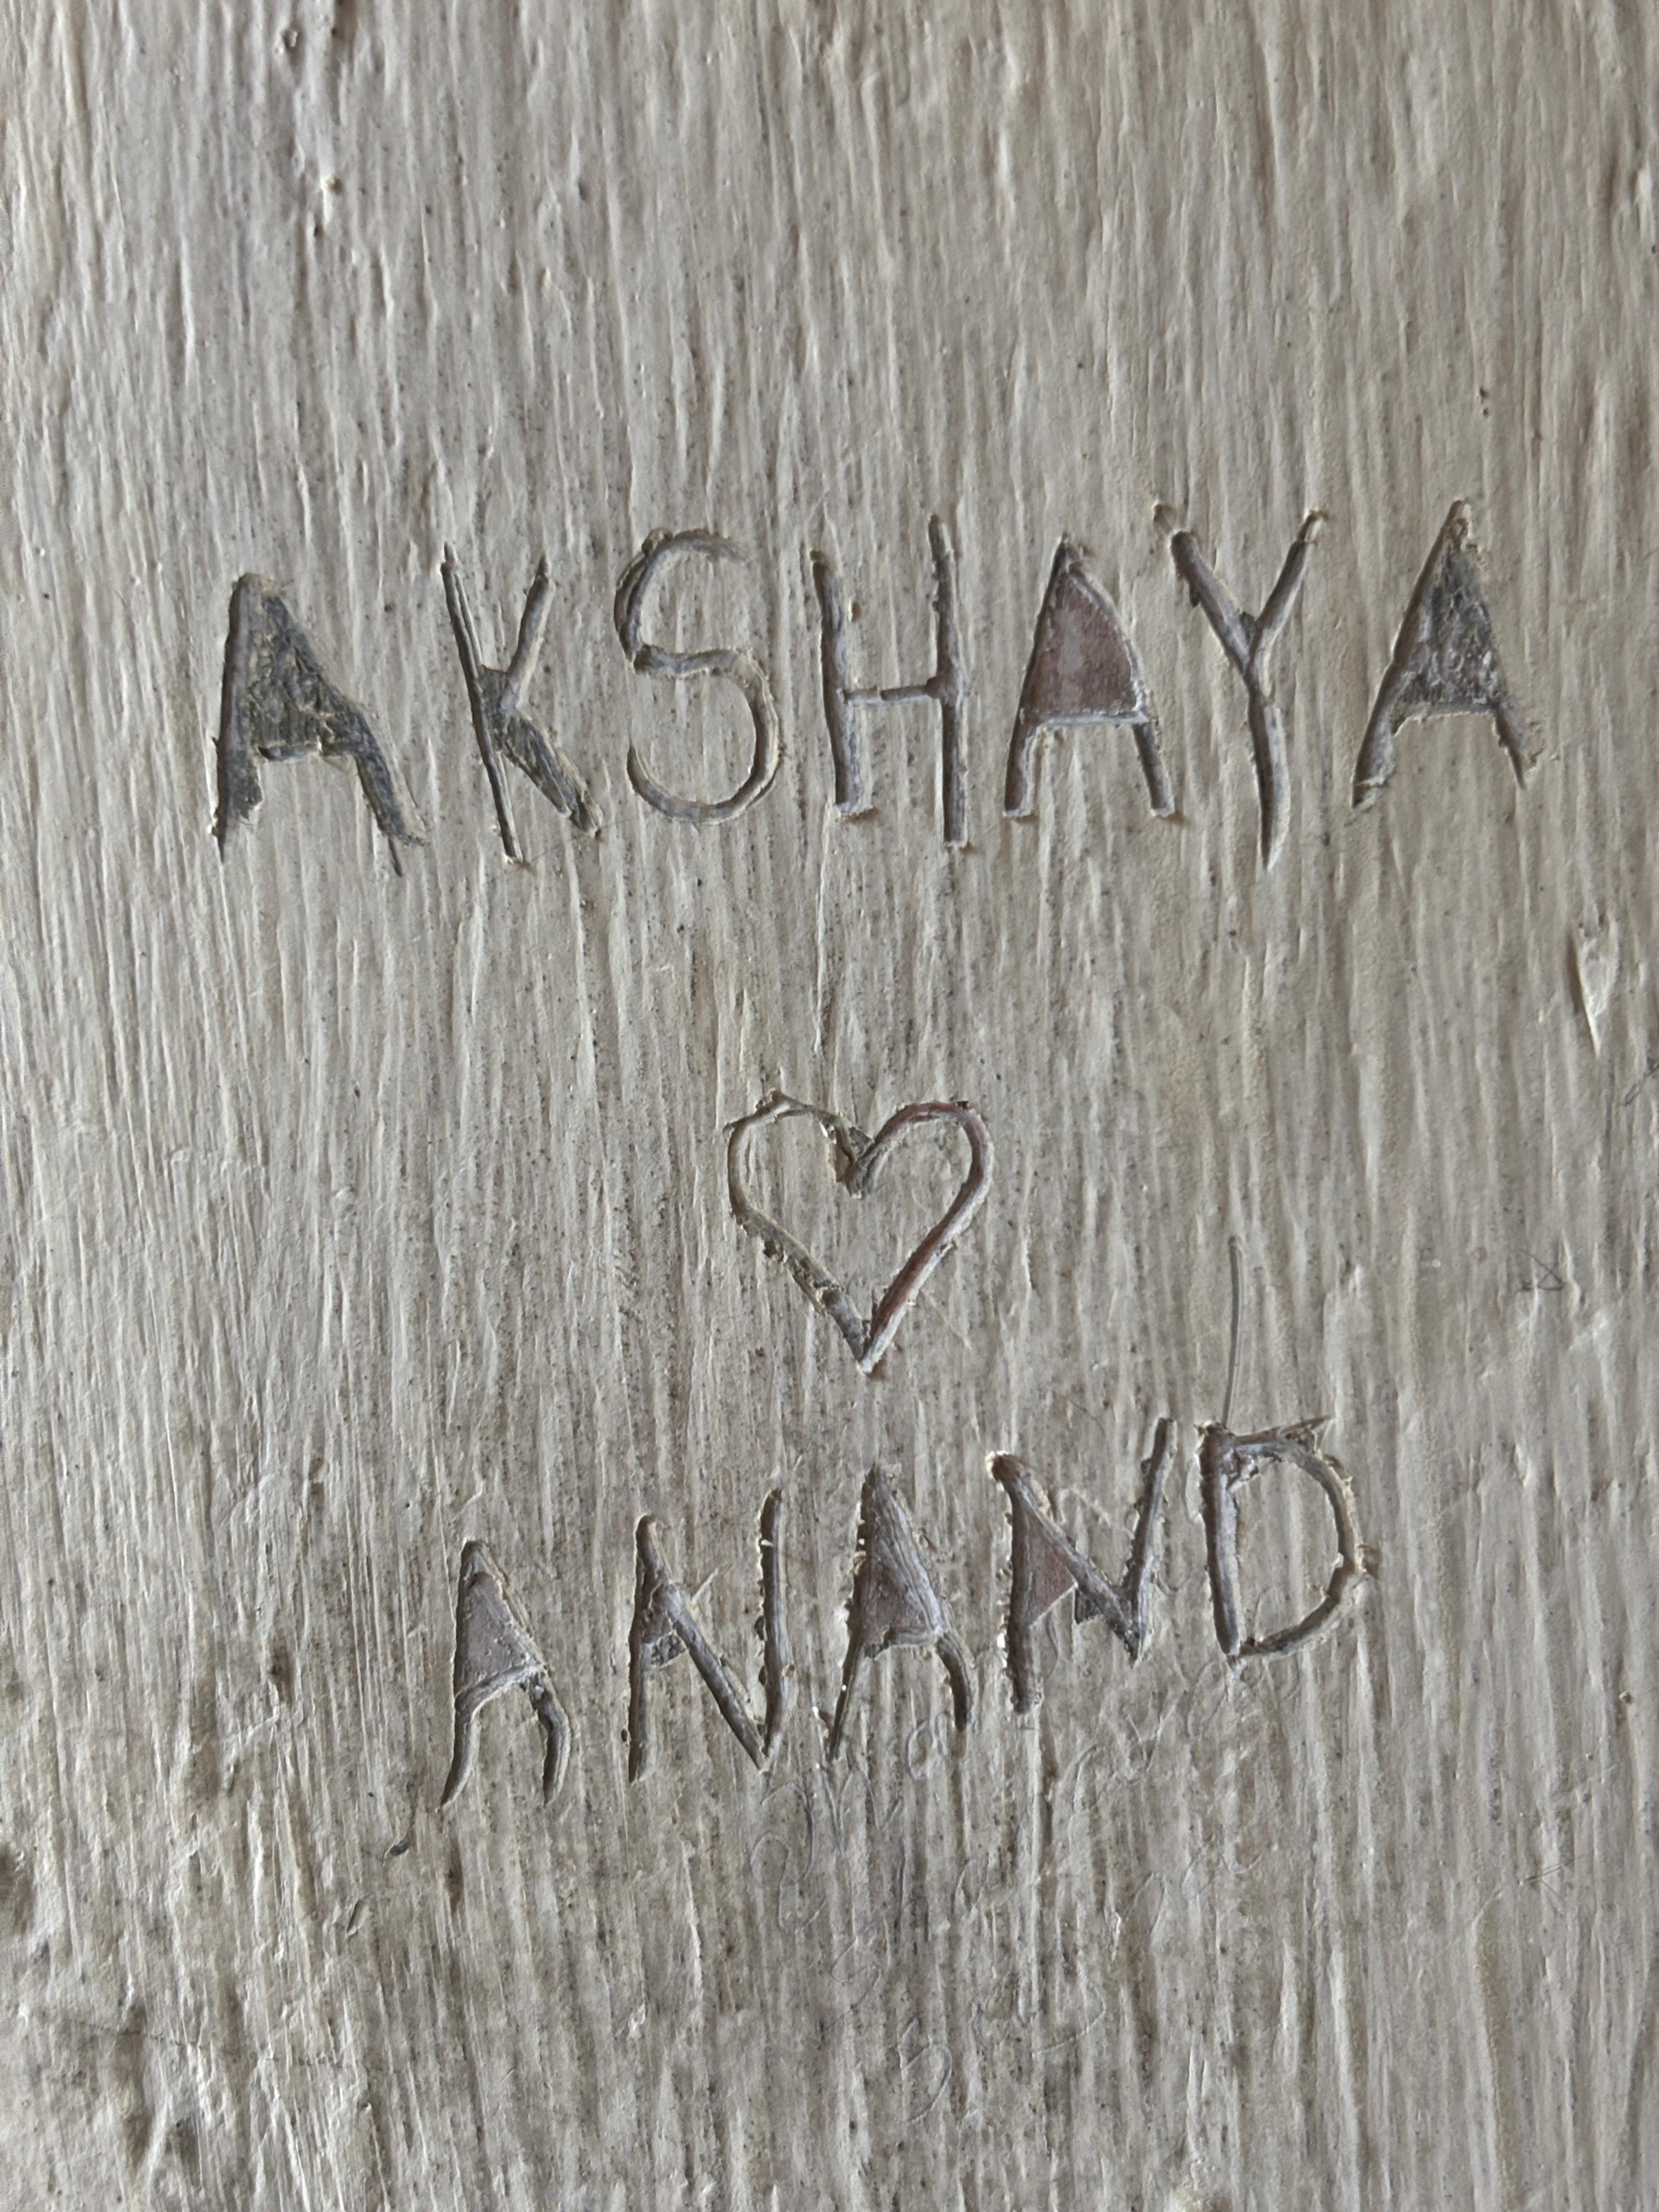 AKSHAYA
♡
ANAND